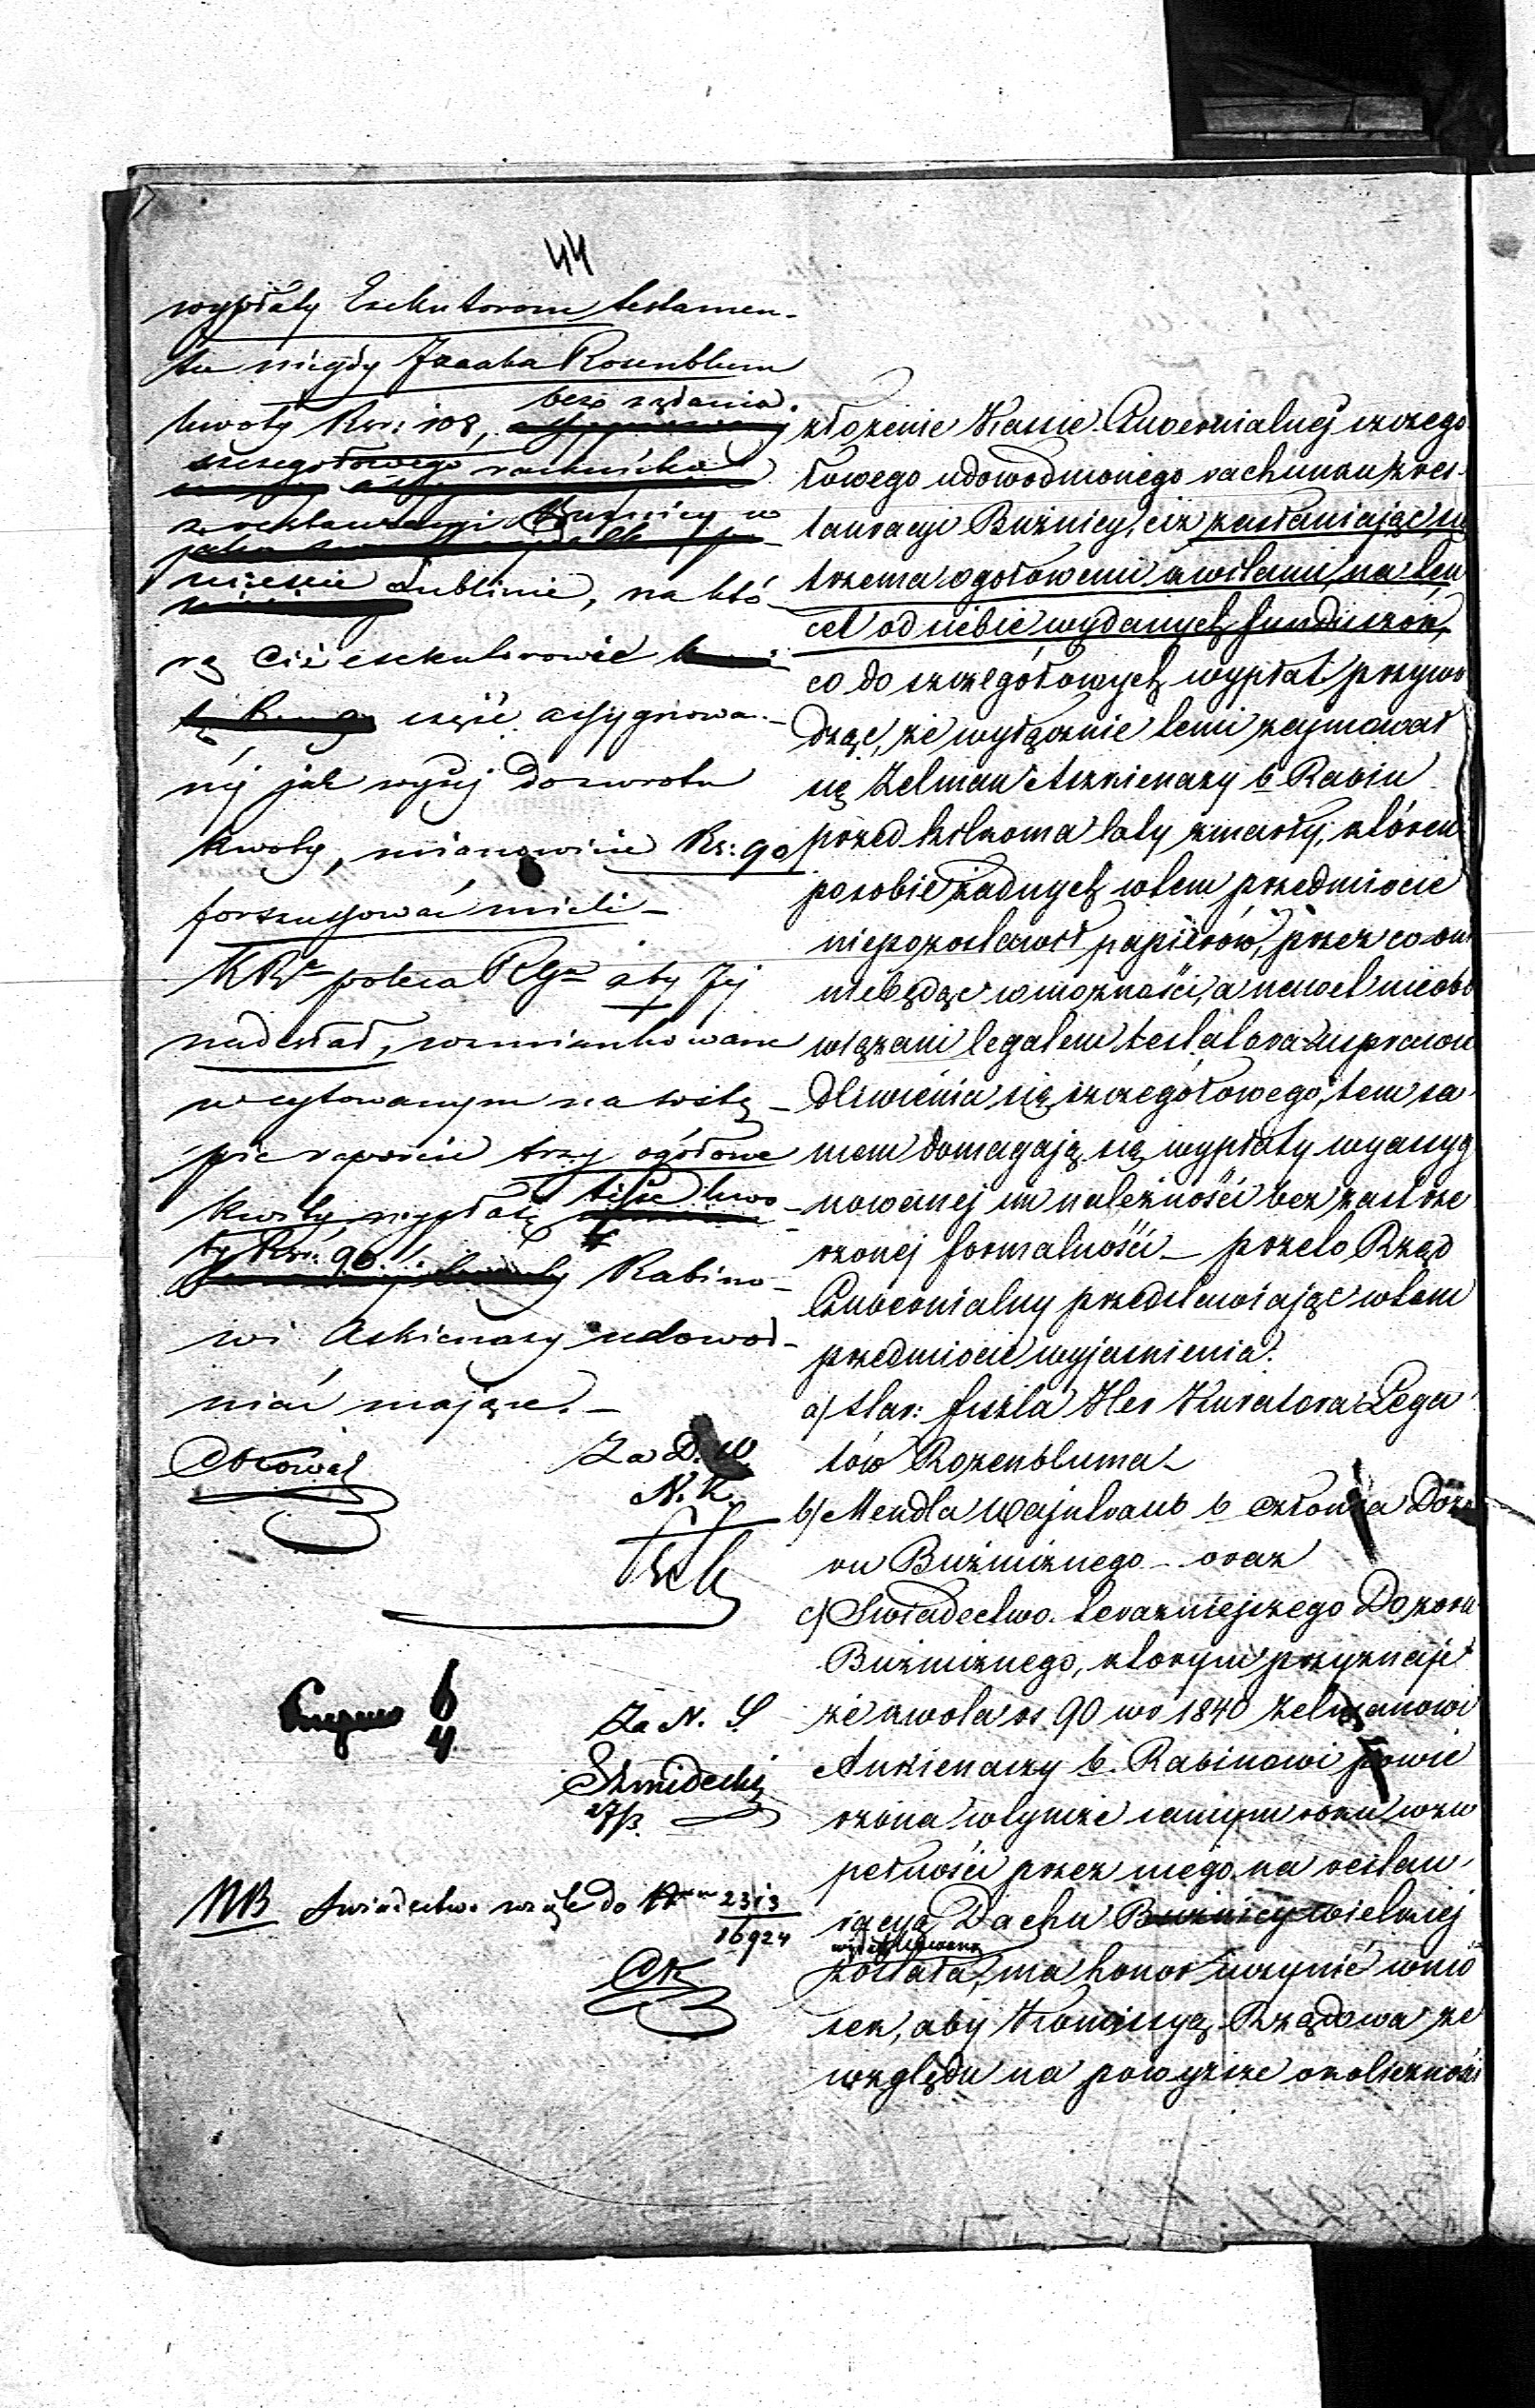 44
wypłaty Exekutorom testamen-
tu niegdy Izaaka Rosenblum
bez żądania
kwoty Rsr: 108,
szczegółowego rachunku
z restauracyi Bużnicy w
mieście Lublinie, na któ-
rą Ciż exekutorowie
część assygnowa-
néj jak wyżej do zwrotu
kwoty, mianowicie Rs: 90
forszussować mieli –
KRz poleca RGz aby Jej
nadesłał, wzmiankowane
w cytowanym na wstę-
pie raporcie trzy ogółowe
kwity wypłatę tejże kwo-
ty Rsr. 90 Rabino-
wi Askienazy udowod-
niać mające. –
Za D. W.
N. K.
Za N. S.
27/3.
NB Świadectwo wzięte do 2313
16924
złożenie Kassie Gubernialnej szczegó
łowego udowodnionego rachunku z res-
tauracyi Bużnicy, ciż zasłaniając się
trzema ogółowemi kwitami, na ten
cel od siebie wydanych funduszów,
co do szczegółowych wypłat przywo
dząc, że wyłącznie temi zajmował
się Zelman Aszkienazy b. Rabin
przed kilkoma laty zmarły, któren
po sobie żadnych w tem przedmiocie
niepozostawił papierów, przez co oni
niebędąc w możności, a nawet nieobo
wiązani legatem testatora usprawie
dliwienia się szczegółowego, tem sa-
mem domagają się wypłaty wyassyg
nowanej im należności bez zastrze
żonej formalności – przeto Rząd
Gubernialny przedstawiając w tem
przedmiocie wyjaśnienia.
a) Star: Fiszla Kuratora Lega
tów Rozenbluma
b) Mendla Wajntraub b. członka Dozo
ru Bużniznego – oraz
c) Świadectwo teraźniejszego Dozoru
Bużniznego, którym przyznaje
że kwota rs. 90 w r 1840 Zelmanowi
Aszkienazy b. Rabinowi powie
rzona w tymże samym roku w zu
pełności przez niego na restau-
racyą Dachu Bużnicy wielkiej
wydatkowaną
została, ma honor uczynić wnio
sek, aby Kommissya Rządowa ze
względu na powyższe okoliczności